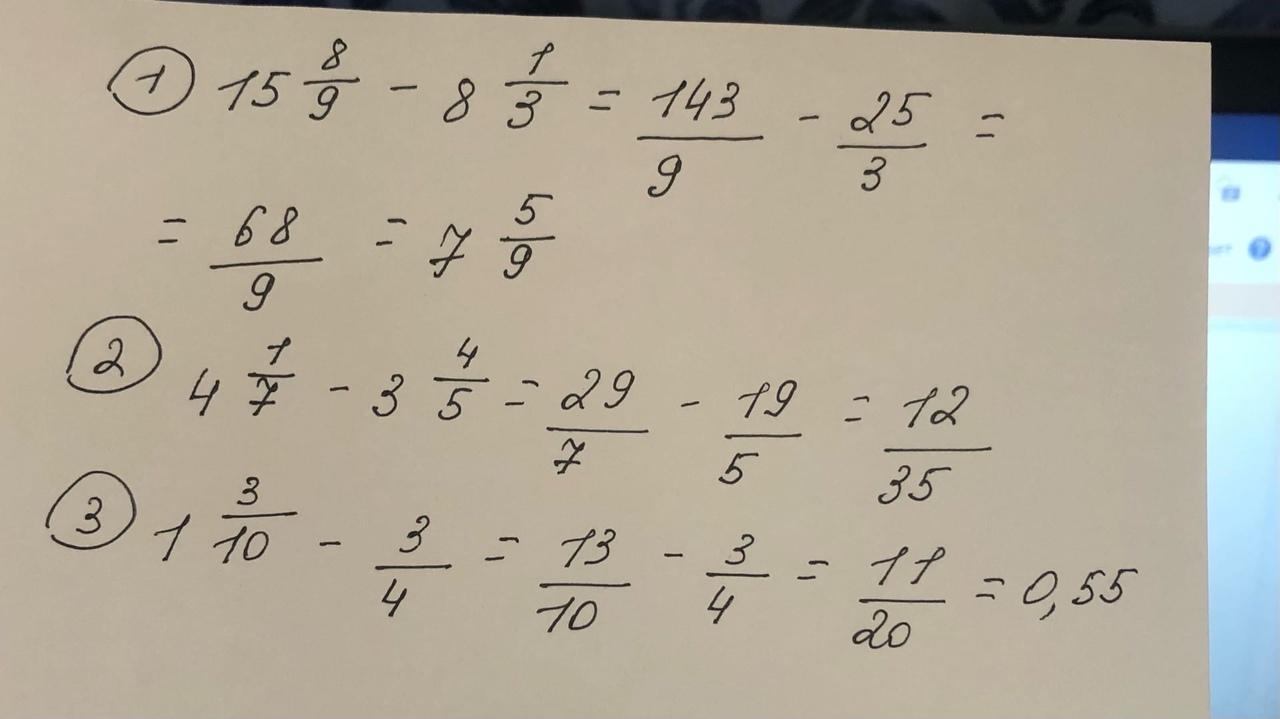 ① 15 8/9 - 8 1/3 = 143/9 - 25/3 =
= 68/9 = 7 5/9
② 4 1/7 - 3 4/5 = 29/7 - 19/5 = 12/35
③ 1 3/10 - 3/4 = 13/10 - 3/4 = 11/20 = 0,55